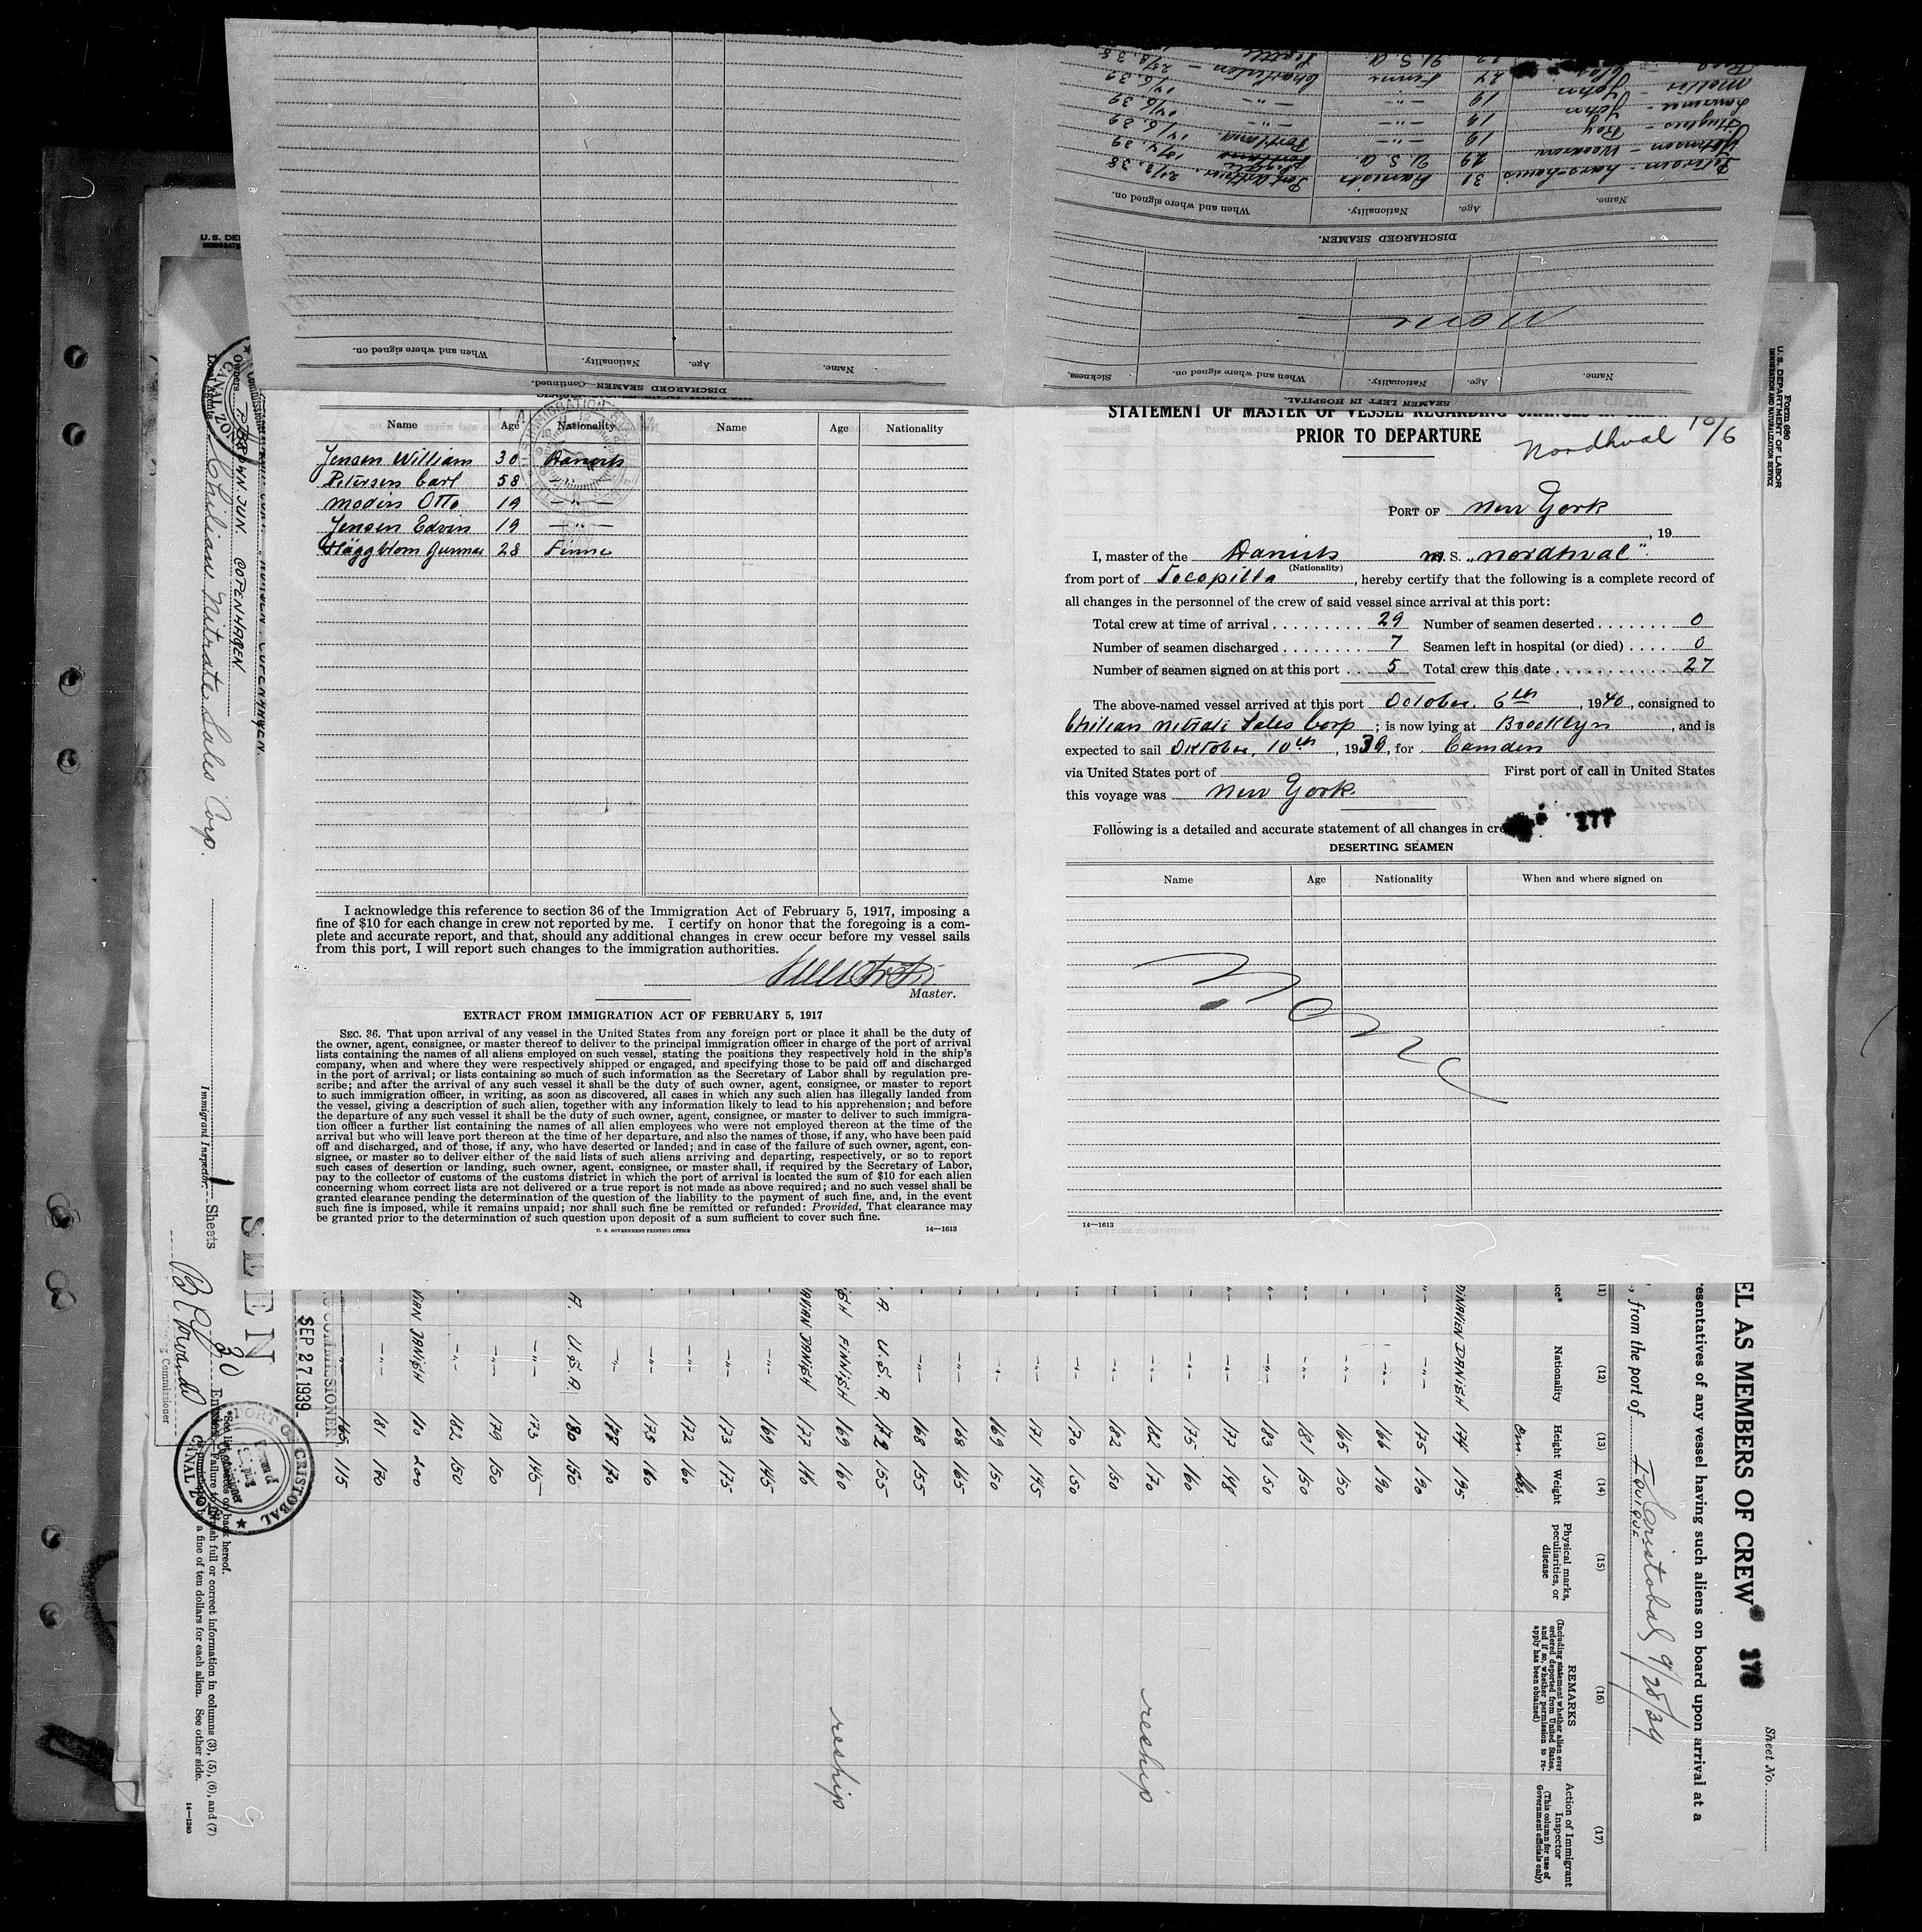 SEAMEN LEFT IN HOSPITAL.
Name. Age. Nationality. When and where signed on. Sickness.
None
DISCHARGED SEAMEN.
Name. Age. Nationality. When and where signed on.
Petersen - hans-Louis 31 Danish Port Arthur 38
Johnson - 29 U.S.A. Portland 39
Hughes - Roy 19 — " — Portland 6.39
Laurence - John 19 — " — — " — 6.39
Mellin - John 19 — " — — " — 6.39
24 Finne Charleston - 38
22 U.S.A. Seattle
DISCHARGED SEAMEN—Continued.
Name. Age. Nationality. When and where signed on.
Name Age Nationality Name Age Nationality
Jensen William 30 Danish
Petersen Carl 58
Modin Otto 19 — " —
Jensen Edvin 19 — " —
Häggblom Gunnar 28 Finne
I acknowledge this reference to section 36 of the Immigration Act of February 5, 1917, imposing a
fine of $10 for each change in crew not reported by me. I certify on honor that the foregoing is a com-
plete and accurate report, and that, should any additional changes in crew occur before my vessel sails
from this port, I will report such changes to the immigration authorities.
Master.
EXTRACT FROM IMMIGRATION ACT OF FEBRUARY 5, 1917
SEC. 36. That upon arrival of any vessel in the United States from any foreign port or place it shall be the duty of
the owner, agent, consignee, or master thereof to deliver to the principal immigration officer in charge of the port of arrival
lists containing the names of all aliens employed on such vessel, stating the positions they respectively hold in the ship's
company, when and where they were respectively shipped or engaged, and specifying those to be paid off and discharged
in the port of arrival; or lists containing so much of such information as the Secretary of Labor shall by regulation pre-
scribe; and after the arrival of any such vessel it shall be the duty of such owner, agent, consignee, or master to report
to such immigration officer, in writing, as soon as discovered, all cases in which any such alien has illegally landed from
the vessel, giving a description of such alien, together with any information likely to lead to his apprehension; and before
the departure of any such vessel it shall be the duty of such owner, agent, consignee, or master to deliver to such immigra-
tion officer a further list containing the names of all alien employees who were not employed thereon at the time of the
arrival but who will leave port thereon at the time of her departure, and also the names of those, if any, who have been paid
off and discharged, and of those, if any, who have deserted or landed; and in case of the failure of such owner, agent, con-
signee, or master so to deliver either of the said lists of such aliens arriving and departing, respectively, or so to report
such cases of desertion or landing, such owner, agent, consignee, or master shall, if required by the Secretary of Labor,
pay to the collector of customs of the customs district in which the port of arrival is located the sum of $10 for each alien
concerning whom correct lists are not delivered or a true report is not made as above required; and no such vessel shall be
granted clearance pending the determination of the question of the liability to the payment of such fine, and, in the event
such fine is imposed, while it remains unpaid; nor shall such fine be remitted or refunded: Provided, That clearance may
be granted prior to the determination of such question upon deposit of a sum sufficient to cover such fine.
U. S. GOVERNMENT PRINTING OFFICE 14—1613
Form 680
U. S. DEPARTMENT OF LABOR
IMMIGRATION AND NATURALIZATION SERVICE
STATEMENT OF MASTER OF VESSEL REGARDING CHANGES IN
PRIOR TO DEPARTURE
Nordhval 10/6
PORT OF New York
, 19
I, master of the Danish M. S. "Nordhval".
(Nationality)
from port of Tocopilla, hereby certify that the following is a complete record of
all changes in the personnel of the crew of said vessel since arrival at this port:
Total crew at time of arrival 29 Number of seamen deserted 0
Number of seamen discharged 7 Seamen left in hospital (or died) 0
Number of seamen signed on at this port 5 Total crew this date 27
The above-named vessel arrived at this port October, 6th, 1940, consigned to
Chilean Nitrate Sales Corp; is now lying at Brooklyn, and is
expected to sail Oktober, 10th, 1939, for Camden
via United States port of First port of call in United States
this voyage was New York.
Following is a detailed and accurate statement of all changes in cre 177
DESERTING SEAMEN
Name Age Nationality When and where signed on
None
14—1613
EL AS MEMBERS OF CREW 176
Sheet No.
resentatives of any vessel having such aliens on board upon arrival at a
, from the port of IQUIQUE Cristobal 9/28/39
(12) (13) (14) (15) (16) (17)
Nationality Height Weight Physical marks, peculiarities, or disease
REMARKS
(Including statement whether alien ever ordered deported from United States, and if so, whether permission to re-apply has been obtained)
Action of Immigrant Inspector
(This column for use of Government officials only)
cm. lbs.
DINAVIEN DANISH 174 195
-"- 175 190
-"- 166 190
-"- 165 150
-"- 181 150
-"- 183 150
-"- 177 148
-"- 175 160
-"- 182 170 reship
-"- 182 150
-"- 170 150
-"- 171 145
-"- 169 150
-"- 168 165
-"- 168 155
A. U.S.A. 172 155
SH FINNISH 169 160 reship
AVIAN DANISH 177 176
-"- 169 145
-"- 173 175
-"- 172 160
-"- 175 160
-"- 178 170
A. U.S.A. 180 150
-"- 173 145
-"- 179 150
-"- 162 150
VIAN DANISH 180 200
-"- 181 170
-"- 165 115
COMMISSIONER
SEP 27 1939
SEEN
1 Sheets 30
Immigrant Inspector.
Commissioner
PORT OF CRISTOBAL
CANAL ZONE
*See list of races on back hereof.
Failure to furnish full or correct information in columns (3), (5), (6), and (7)
a fine of ten dollars for each alien. See other side.
14—1240
Owners BROWN. JUN. COPENHAGEN
Local Agents Chilian Nitrate Sales Corp.
CANAL ZONE
U. S. DE